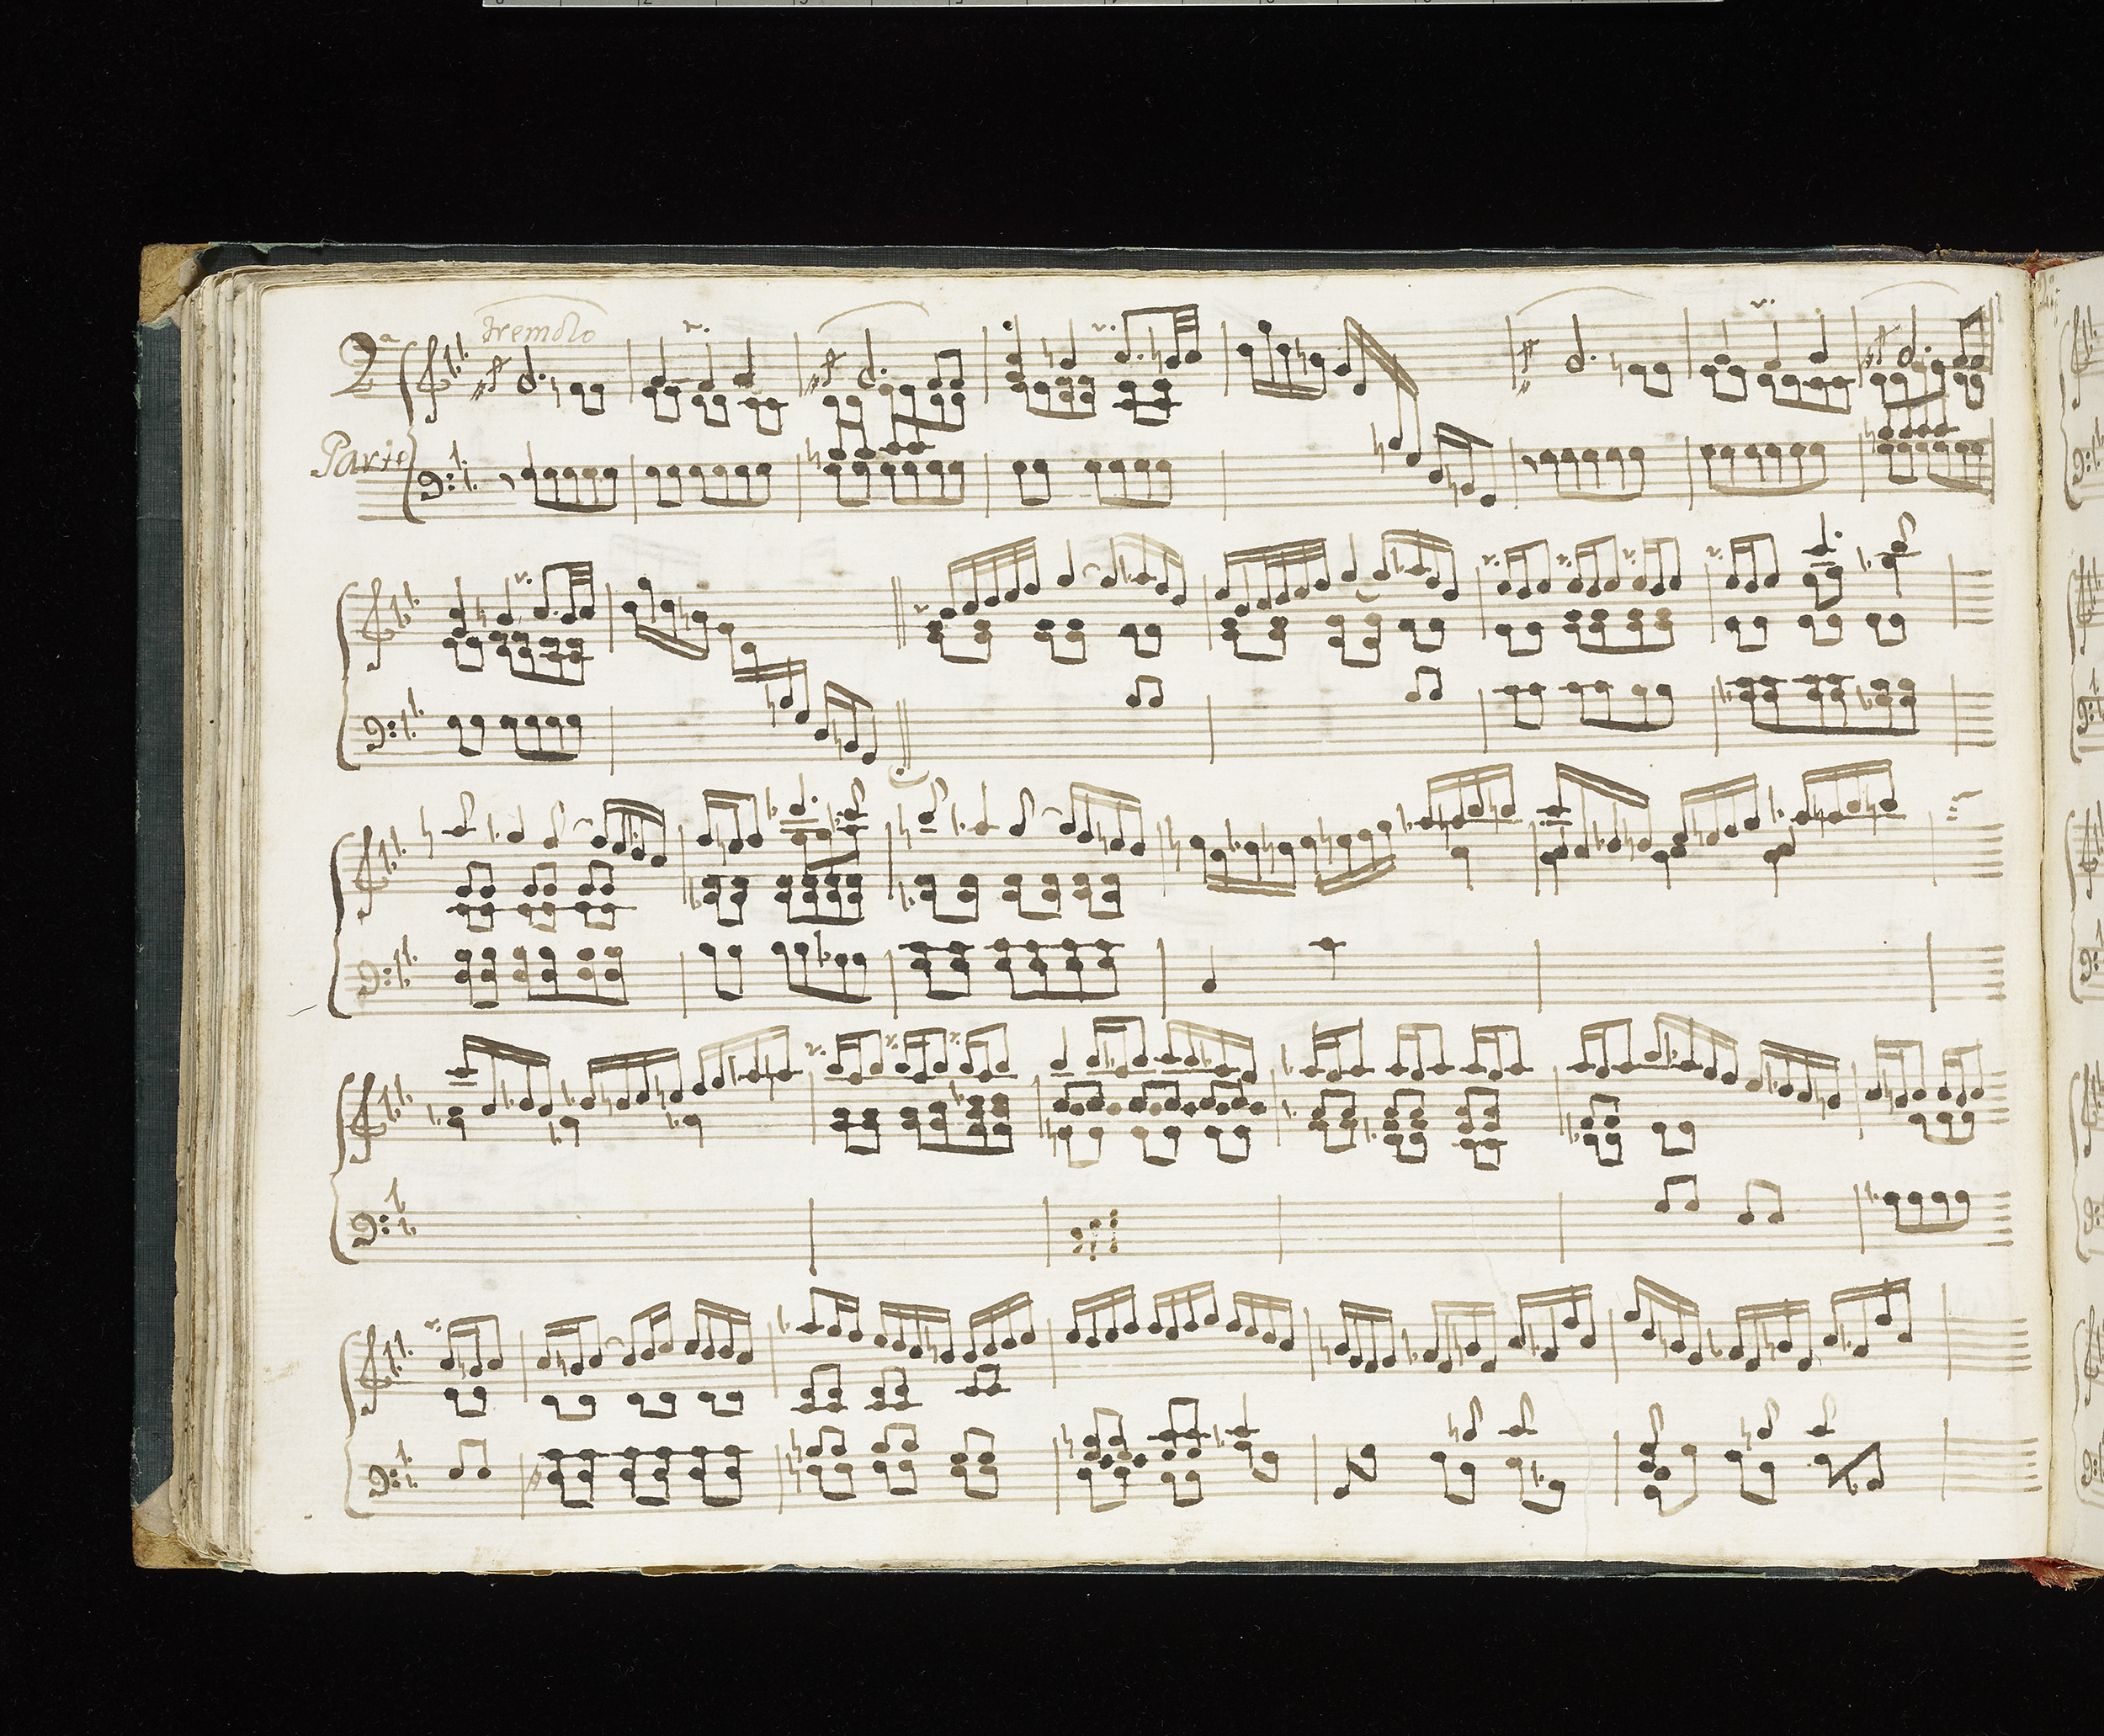 tremolo
2a
Parte